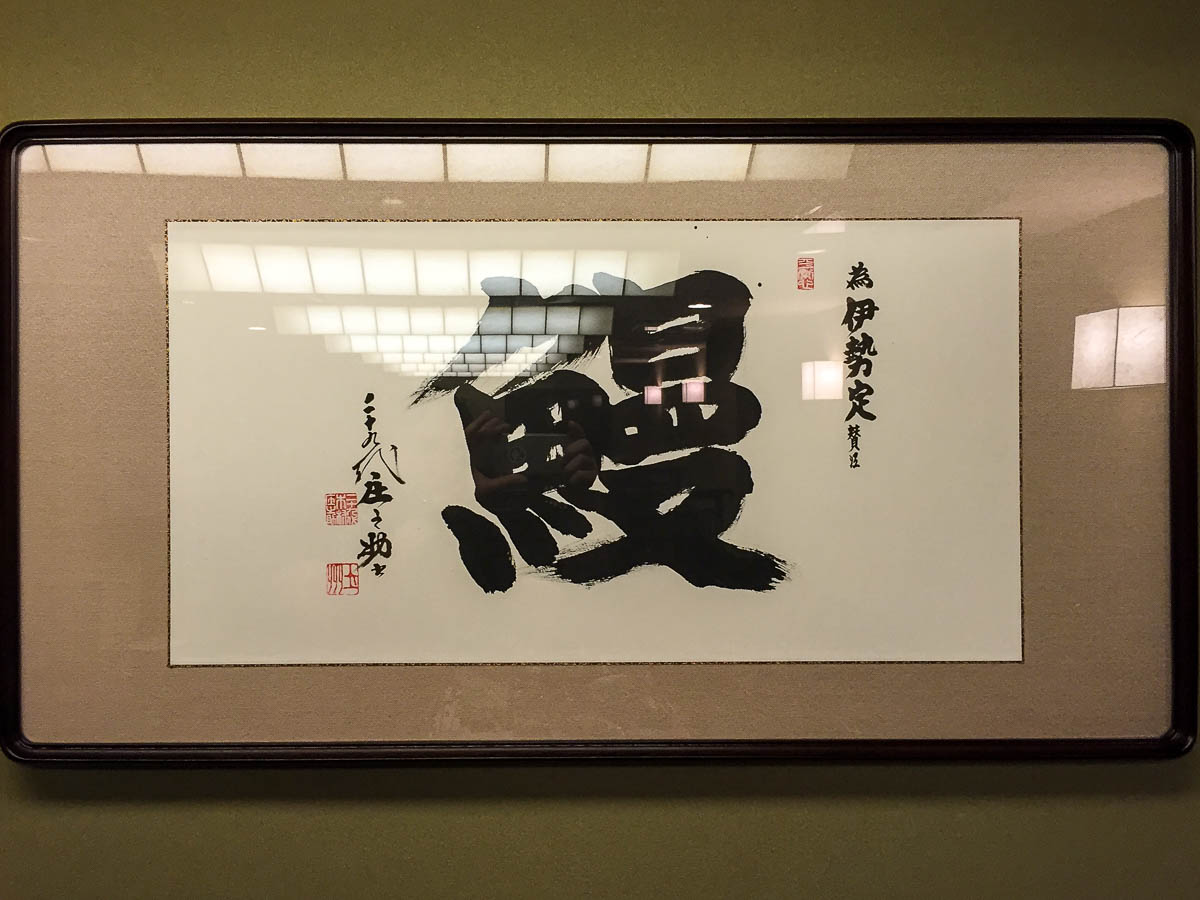 為伊勢定賛江
鰻
二十九代庄之助書